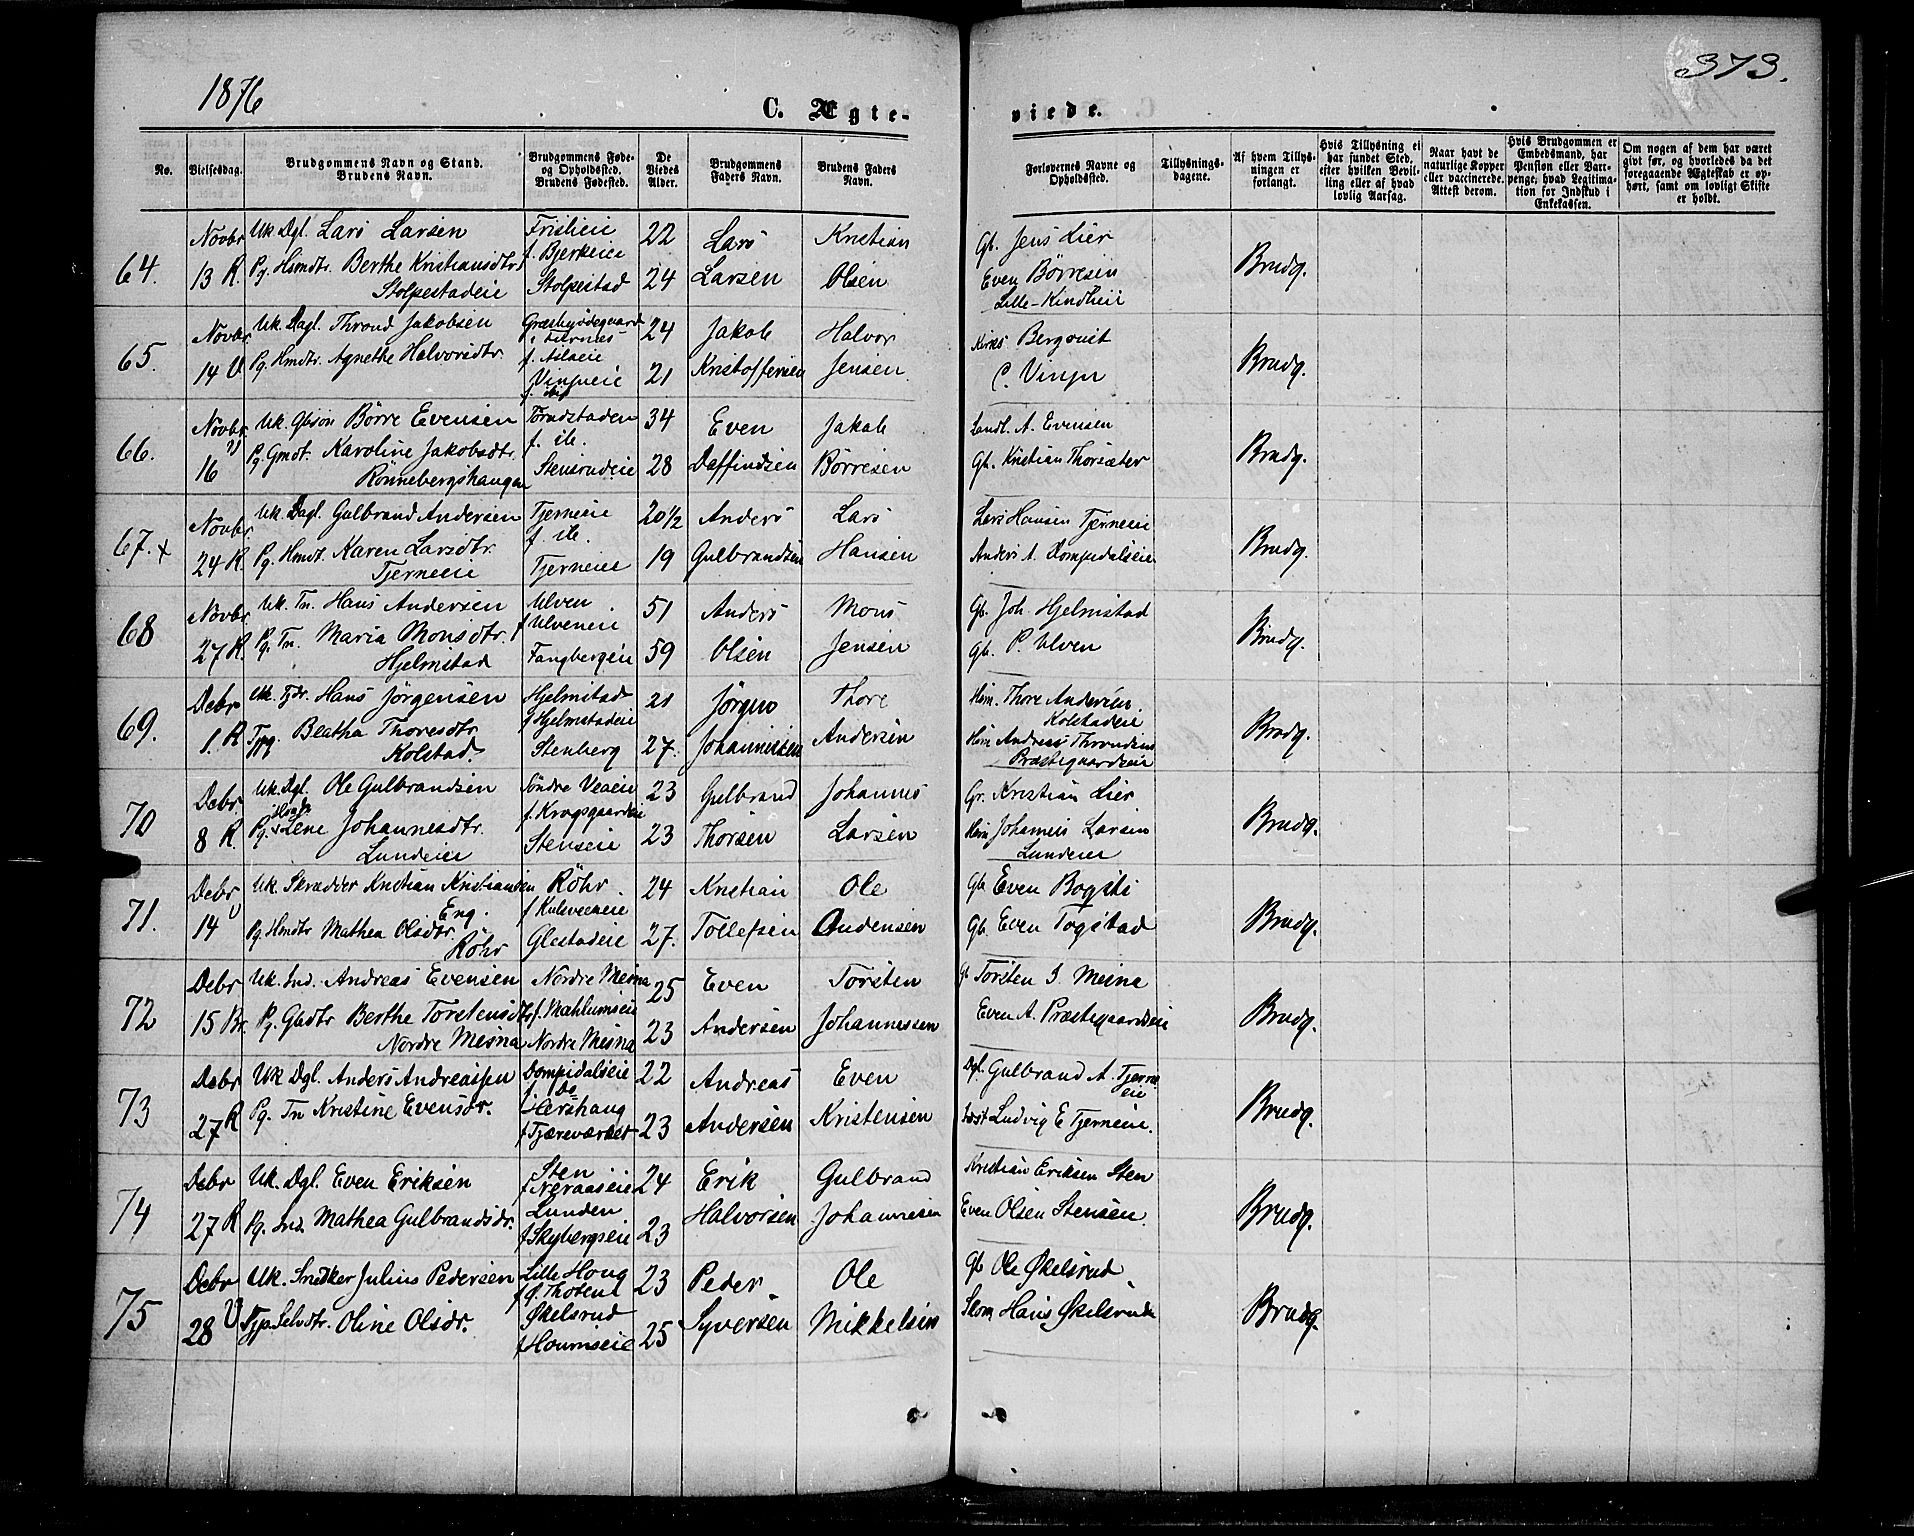 1876
373.
C. Ægte-
viede.
No.
Vielsesdag.
Brudgommens Navn og Stand.
Brudens Navn.
Brudgommens Føde-
og Opholdssted.
Brudens Fødested.
De
Viedes
Alder.
Brudgommens
Faders Navn.
Brudens Faders
Navn.
Forlovernes Navne og
Opholdssted.
Tillysnings-
dagene.
Af hvem Tillys-
ningen er
forlangt.
Hvis Tillysning ei
har fundet Sted,
efter hvilken Bevil-
ling eller af hvad
lovlig Aarsag.
Naar havt de
naturlige Kopper
eller vaccinerede.
Attest derom.
Hvis Brudgommen er
Embedsmand, har
Pension eller Vart-
penge, hvad Legitima-
tion for Indskud i
Enkekassen.
Om nogen af dem har været
givt før, og hvorledes da det
foregaaende Ægteskab er op-
hørt, samt om lovligt Skifte
er holdt.
64. Novbr 13 R.
Uk Dgl. Lars Larsen
Pg. Hsmdtr. Berthe Kristiansdtr.
Stolpestadeie
f. Bjerkeeie
Stolpestad
22
24
Lars
Larsen
Kristian
Olsen
Gb. Jens Lier
Even Börresen
Lille-Kindlieie
Brudg.
65. Novbr. 14 V.
Uk. Dagl. Thrond Jakobsen
Pg. Hmdtr. Agnethe Halvorsdtr.
24
21
Jakob
Kristoffersen
Halvor
Jensen
Bergqvist
Brudg.
66. Novbr. 16
Uk. Gbsön Börre Evensen
Pg. Gmdt. Karoline Jakobsdtr.
Rönnebergshaugen
f. ib.
Stensrudeie
34
28
Even
Daffindsen
Jakob
Börresen
Landh. A. Evensen
Gb. Kristian Thorsæter
Brudg.
67. x Novbr. 24 R.
Uk. Dagl. Gulbrand Andersen
Pg. Hmdt. Karen Larsdtr.
Tjerneeie
Tjerneeie
f. ib.
Tjerneeie
20 1/2
19
Anders
Gulbrandsen
Lars
Hansen
Lars Hansen Tjerneeie
Anders A. Dompidalseie
Brudg.
68 Novbr. 27 R.
Uk. Tn. Hans Andersen
Pg. Tn. Maria Monsdtr.
Hjelmstad
Ulven
f Ulveneie
Fangbergeie
51
59
Anders
Olsen
Mons
Jensen
Gb. Joh. Hjelmstad
Gb. P. Ulven
Brudg.
69. Debr 1. R
Uk. Tjdr. Hans Jörgensen
Tjpg. Beatha Thoresdtr.
Kolstad.
Hjelmstad
f Hjelmstadeie
Stenberg
21
27.
Jörgen
Johannesen
Thore
Andersen
Hsm. Thore Andersen.
Kolstadeie
Hsm Andreas Throndsen
Præstegaardseie
Brudg.
70 Debr 8 R.
Uk. Dgl. Ole Gulbrandsen
Pg. Hsmdtr. Lene Johannesdtr.
Lundeeie
Söndre Veaeie
f. Krogsgaardeie
Stenseie
23
23
Gulbrand
Thorsen
Johannes
Larsen
Gr. Kristian Lier
Hsm. Johannes Larsen
Lundeeie
Brudg.
71. Debr 14 V
Uk. Skrædder Kristian Kristiansen
Eng.
Pg. Hmdtr Mathea Olsdtr.
Röhr
Röhr.
f Kulsveeneie
Glestadeie
24
27.
Kristian
Tollefsen
Ole
Andersen
Gb Even Bogsti
Gb. Even Togstad
Brudg.
72 Debr 15 Br.
Uk. Ind. Andreas Evensen
Pg. Gbdtr Berthe Torstensdtr
Nordre Mesna
Nordre Mesna
f. Mæhlumseie
Nordre Mesna
25
23
Even
Andersen
Torsten
Johannessen
Gb Torsten J Mesna
Even A. Præstegaardseie
Brudg.
73 Debr 27 R
Uk Dgl. Anders Andreassen
Pg. Tn Kristine Evensdr.
Dompidalseie
f. do
Hershaug
f Tjæreværket
22
23
Andreas
Andersen
Even
Kristensen
Dgl. Gulbrand A. Tjerne
eie
Ludvig E Tjerneeie.
Brudg.
74 Debr 27 R
Uk. Dgl. Even Eriksen
Pg. Ind. Mathea Gulbrandsdr.
Sten
f Neraaseie
Lunden
f Skybergseie
24
23
Erik
Halvorsen
Gulbrand
Johannesen
Kristian Eriksen Sten
Even Olsen Stenseie.
Brudg.
75 Debr 28 V
Uk. Snedker Julius Pedersen
Tjp. Selvdtr. Oline Olsdr.
Lille Houg
f Ø. Thoten
Økelsrud
f Houmseie
23
25
Peder
Syversen
Ole
Mikkelsen
Gb Ole Økelsrud
Skom Hans Økelsrud
Brudg.